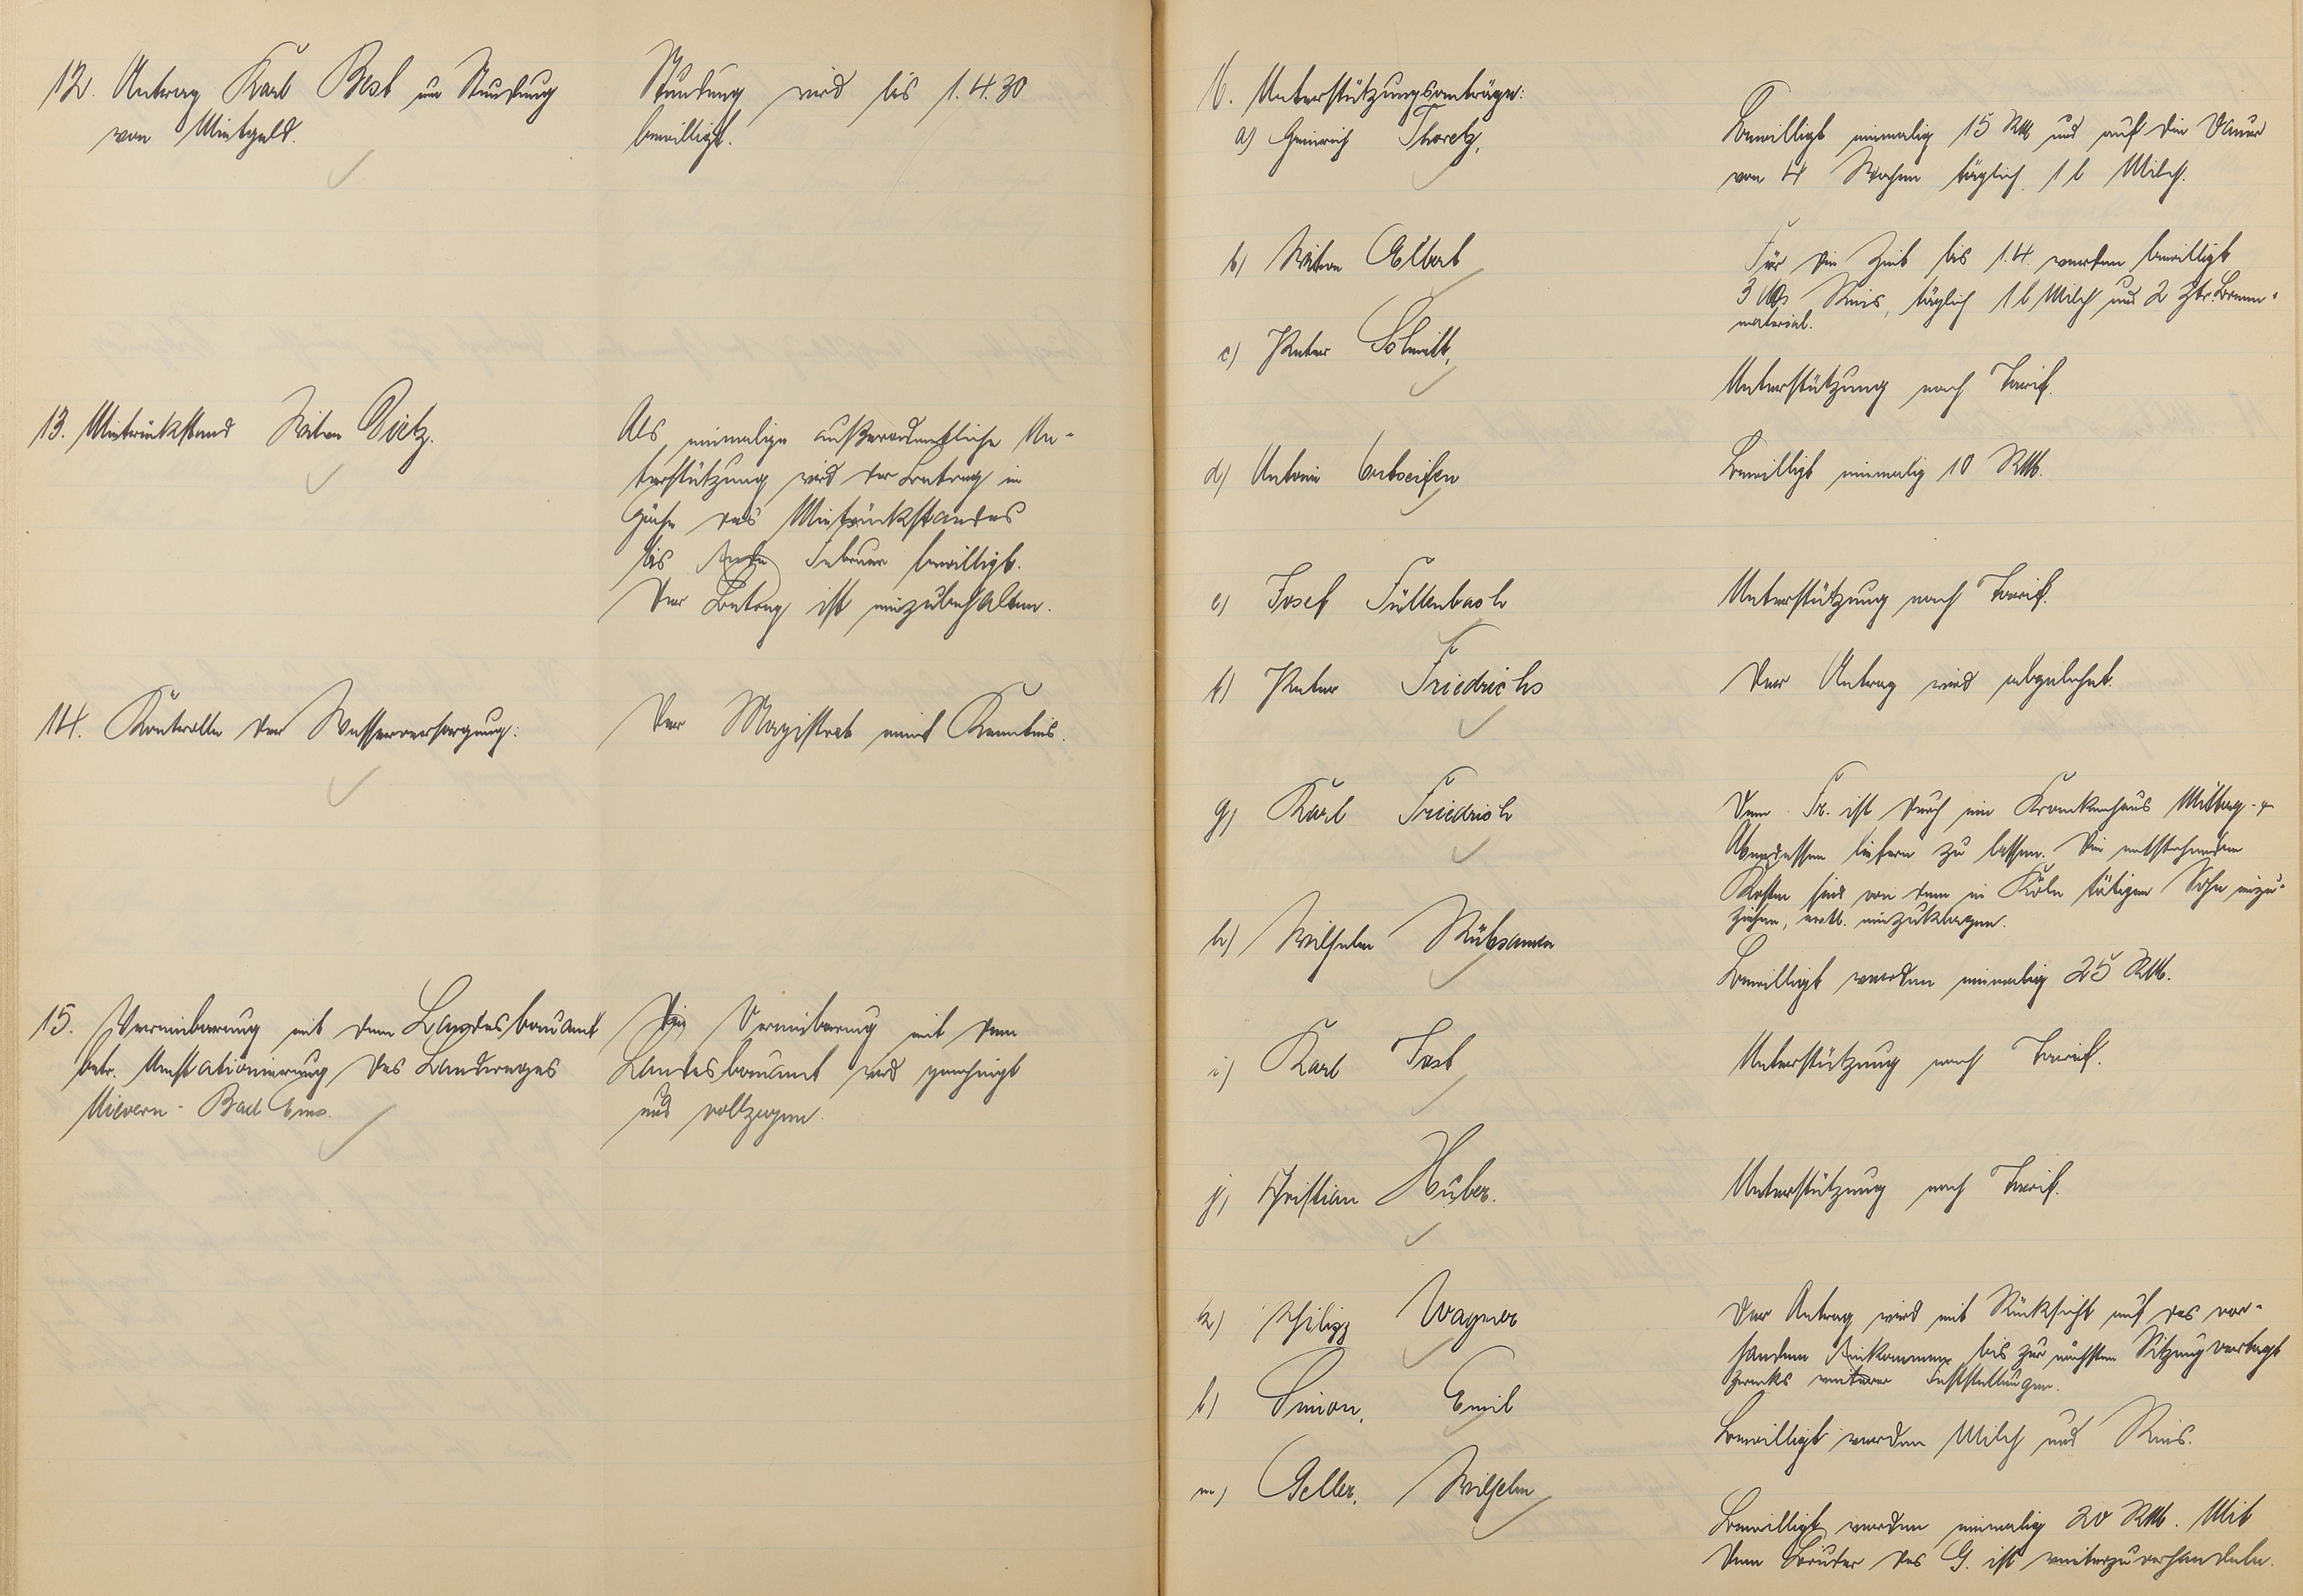 12. Antrag Karl Best um Stundung
von Mietgeld.
Stundung wird bis 1.4.30
bewilligt.
13. Mietrückstand Witwe Dietz.
Als einmalige außerordentliche Un-
terstützung wird der Betrag in
Höhe des Mietrückstandes
bis Ende Februar bewilligt.
Der Betrag ist einzubehalten.
14. Kontrolle der Wasserversorgung:
Der Magistrat nimt Kenntnis.
15. Vereinbarung mit dem Landesbauamt
betr. Umstationierung des Landweges
Miecern - Bad Ems.
Die Vereinbarung mit dem
Landesbauamt wird genehmigt
und vollzogen.
16. Unterstützungsanträge:
a) Heinrich Thoretz,
Bewilligt einmalig 15 RM und auf die Dauer
von 4 Wochen täglich 1 l Milch.
b) Witwe Elbert
Für die Zeit bis 1.4. werden bewilligt
3 Kg Reis, täglich 1 l Milch und 2 Ztr. Brenn-
material.
c) Peter Schmitt,
Unterstützung nach Tarif.
d) Antonie Erbseifen
Bewilligt einmalig 10 RM.
e) Josef Füllenbach
Unterstützung nach Tarif.
f) Peter Friedrichs
Der Antrag wird abgelehnt.
g) Karl Friedrich
Dem Fr. ist durch ein Krankenhaus Mittag- &
Abendessen liefern zu lassen. Die entstehenden
Kosten sind von dem in Köln tätigen Sohn einzu-
ziehen, evtl. einzuklagen.
h) Wilhelm Rübsamen
Bewilligt werden einmalig 25 RM.
i) Karl Jost
Unterstützung nach Tarif.
j) Christian Huber.
Unterstützung nach Tarif.
k) Philipp Wagner
Der Antrag wird mit Rücksicht auf das vor-
handene Einkommen bis zur nächsten Sitzung vertagt
zwecks weiterer Feststellungen.
l) Simon, Emil
Bewilligt werden Milch und Reis.
m) Geller, Wilhelm
Bewilligt werden einmalig 20 RM. Mit
dem Bruder des G. ist weiterzuverhandeln.